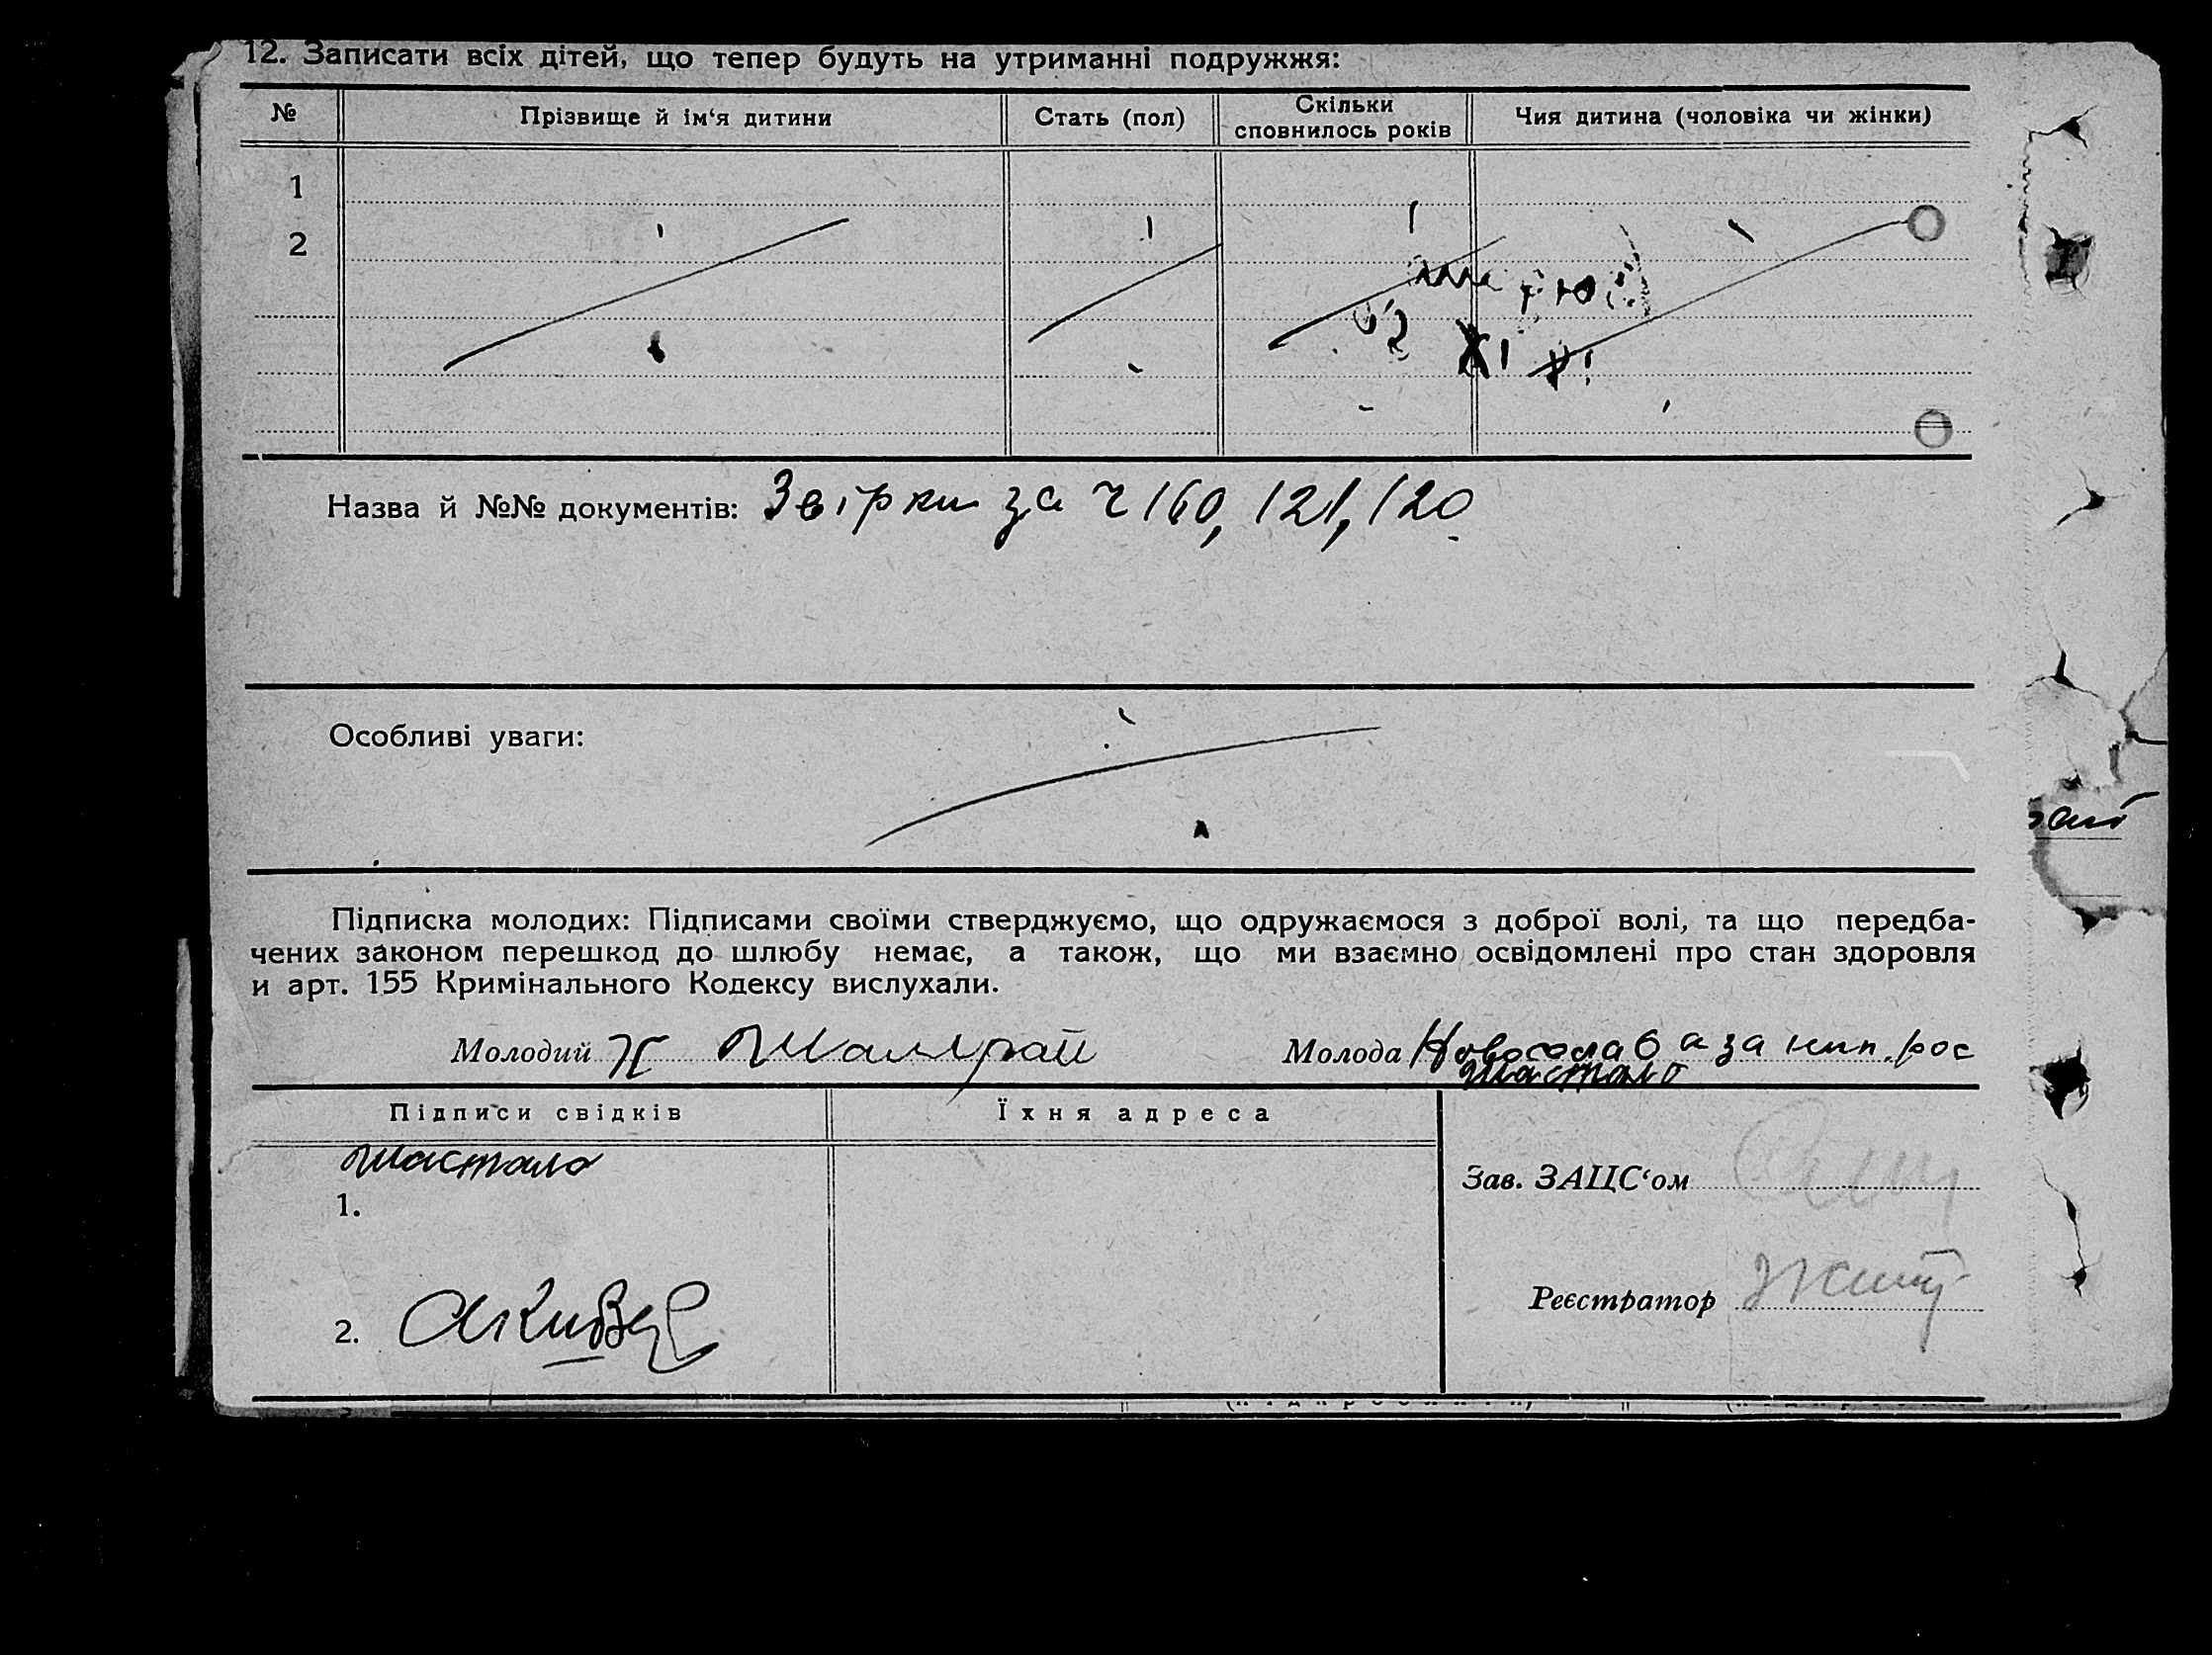 12. Записати всіх дітей, що тепер будуть на утриманні подружжя:
№ Прізвище й ім‘я дитини Стать (пол) Скільки сповнилось років Чия дитина (чоловіка чи жінки)
1
2
XI
Назва й №№ документів: Звірки за ч 160, 121, 120
Особливі уваги:
Підписка молодих: Підписами своїми стверджуємо, що одружаємося з доброї волі, та що передба-
чених законом перешкод до шлюбу немає, а також, що ми взаємно освідомлені про стан здоровля
и арт. 155 Кримінального Кодексу вислухали.
Молодий Шамрай Молода за неп. рос
Шастало
Підписи свідків Їхня адреса
Шастало
1.
Зав. ЗАЦС‘ом
2.
Реєстратор